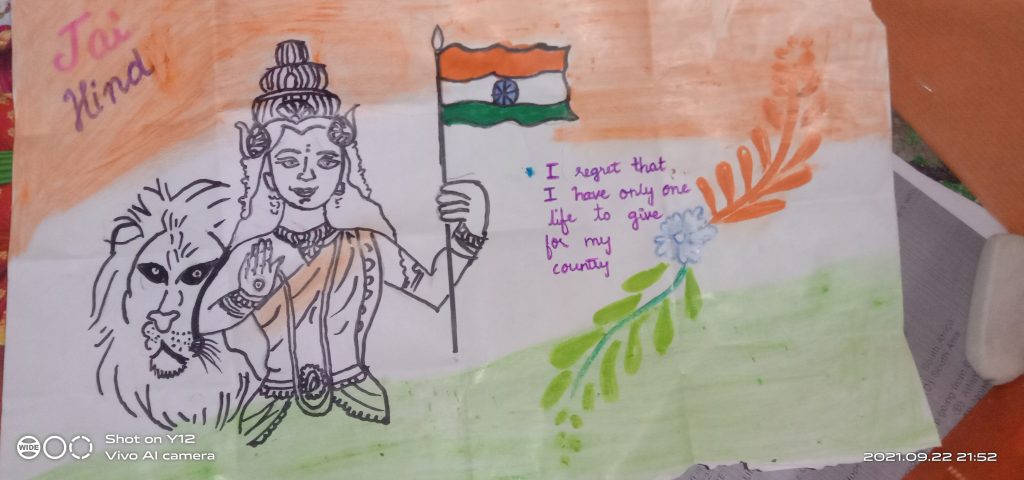 Jai
Hind
I regret that
I have only one
life to give
for my
country
WIDE
Shot on Y12
Vivo AI camera
2021.09.22 21:52